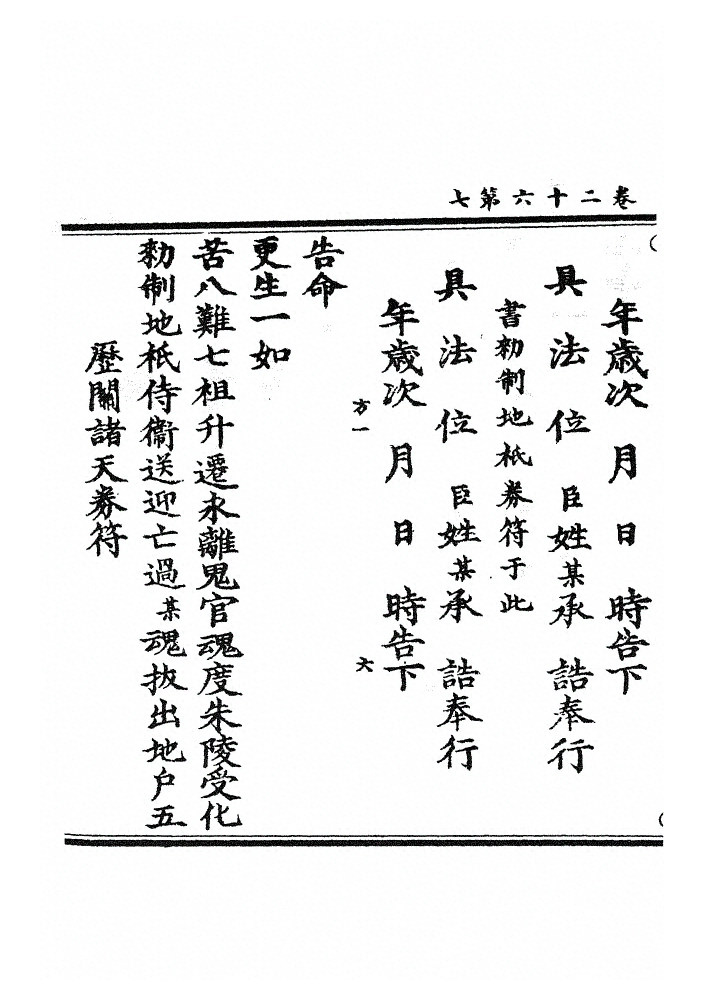 卷二十六第七
歷關諸天券符
勑制地祇侍衞送迎亡過某魂拔出地户五
苦八難七祖升遷永離鬼官魂度朱陵受化
更生一如
告命
方一 六
年歲次 月 日 時告下
具法位臣姓某承誥奉行
書勑制地祇券符于此
具法位臣姓某承誥奉行
年歲次 月 日 時告下